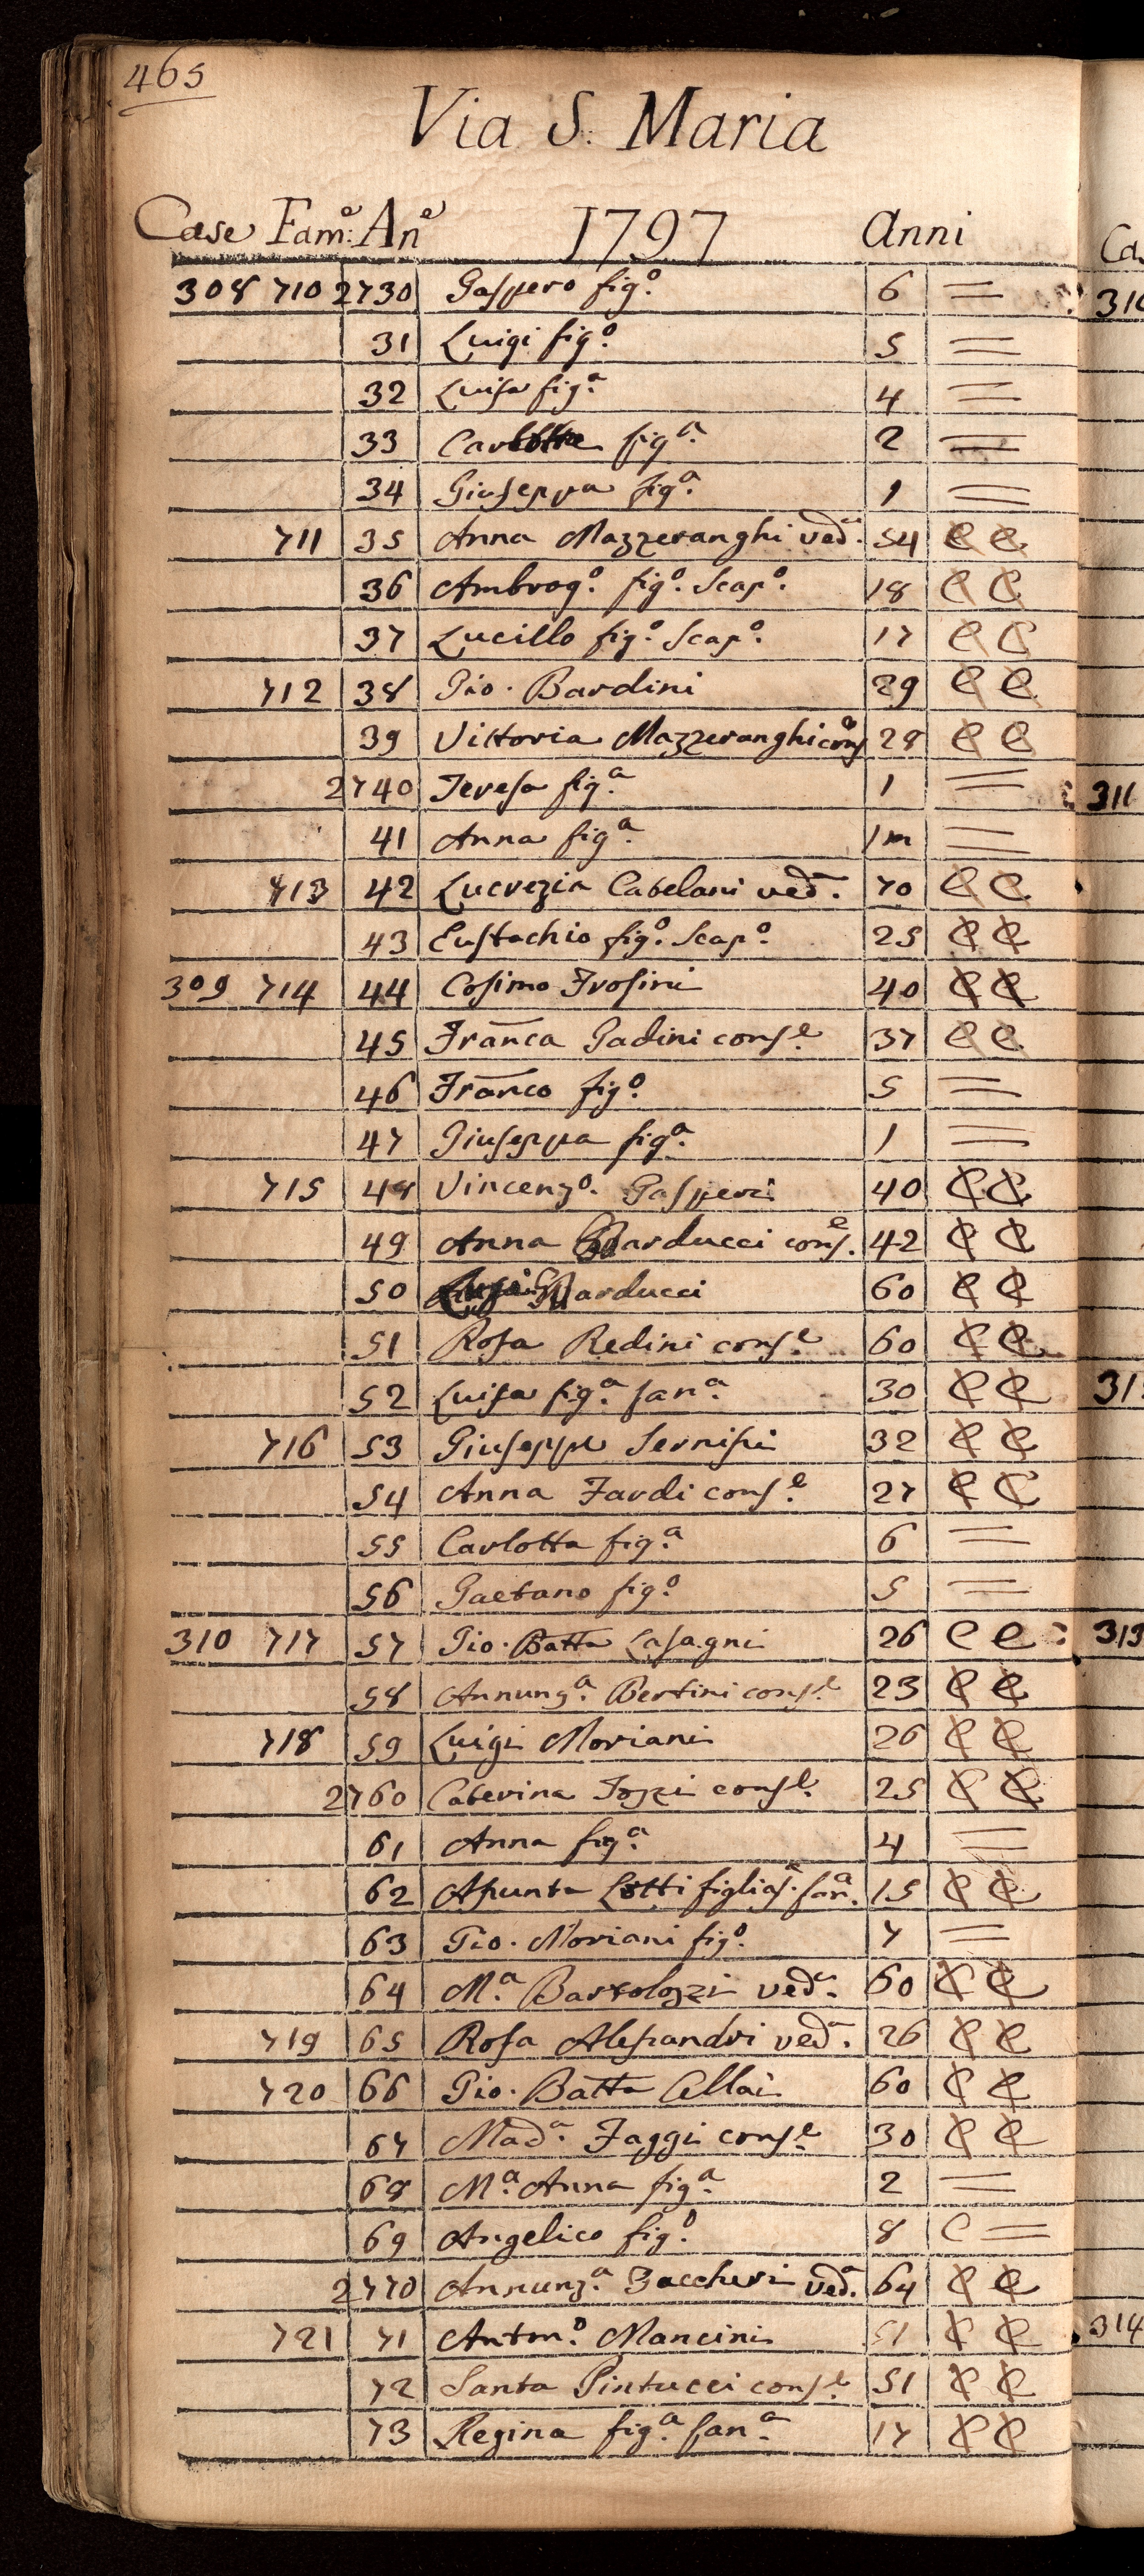 465
Via S. Maria
Case Fam:e An:e 1797 Anni
308 710 2730 Gaspero fig.o 6 =
31 Luigi fig.o 5 =
32 Luisa fig.a 4 =
33 Carlotta fig.a 2 =
34 Giuseppa fig.a 1 =
711 35 Anna Mazzeranghi ved.a 54 C C
36 Ambrog.o fig.o scap.o 18 C C
37 Lucillo fig.o scap.o 17 C C
712 38 Gio. Bardini 29 C C
39 Vittoria Mazzeranghi cons.e 28 C C
2740 Teresa fig.a 1 =
41 Anna fig.a 1m =
713 42 Lucrezia Catelani ved.a 70 C C
43 Eustachio fig.o scap.o 25 C C
309 714 44 Cosimo Frosini 40 C C
45 Franca Gadini cons.e 37 C C
46 Franco fig.o 5 =
47 Giuseppa fig.a 1 =
715 48 Vincenz.o Gasperi 40 C C
49 Anna Barducci cons.e 42 C C
50 Barducci 60 C C
51 Rosa Redini cons.e 60 C C
52 Luisa fig.a fan.a 30 C C
716 53 Giuseppe Sernisi 32 C C
54 Anna Fardi cons.e 27 C C
55 Carlotta fig.a 6 =
56 Gaetano fig.o 5 =
310 717 57 Gio. Batta Lasagni 26 C C
58 Annunz.a Bertini cons.e 23 C C
718 59 Luigi Moriani 26 C C
2760 Caterina Tozzi cons.e 25 C C
61 Anna fig.a 4 =
62 Assunta Lotti figlias.a fan.a 15 C C
63 Gio. Moriani fig.o 7 =
64 M.a Bartolozzi ved.a 60 C C
719 65 Rosa Alessandri ved.a 26 C C
720 66 Gio. Batta Cellai 60 C C
67 Mad.a Faggi cons.e 30 C C
68 M.a Anna fig.a 2 =
69 Angelico fig.o 8 C =
2770 Annunz.a Zaccheri ved.a 64 C C
721 71 Anton.o Mancini 51 C C
72 Santa Pintucci cons.e 51 C C
73 Regina fig.a fan.a 17 C C